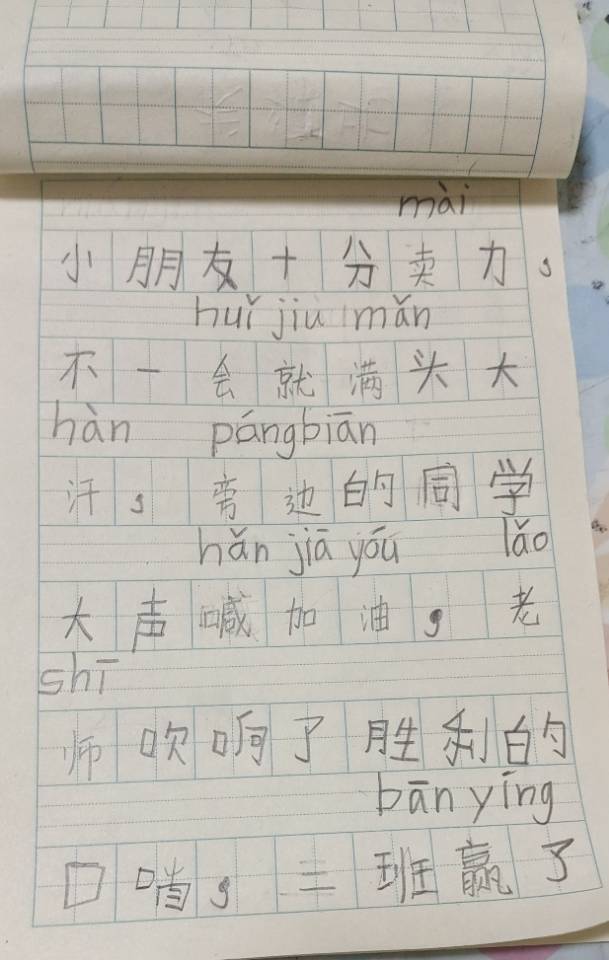 mài
小朋友十分卖力，
huǐ jiù mǎn
不一会就满头大
hàn pángbiān
汗，旁边的同学
hǎn jiā yóu lǎo
大声喊加油，老
shī
师吹响了胜利的
bān yíng
口哨，三班赢了